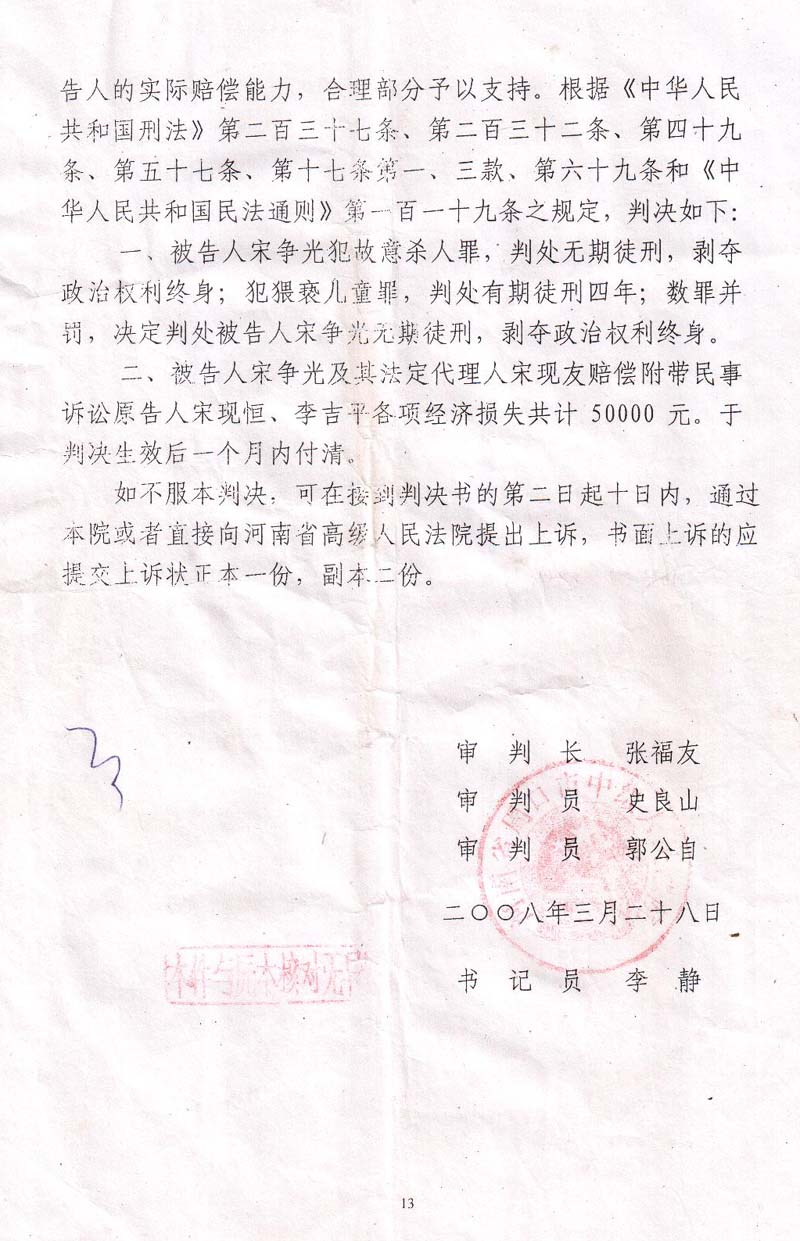 告人的实际赔偿能力，合理部分予以支持。根据《中华人民
共和国刑法》第二百三十七条、第二百三十二条、第四十九
条、第五十七条、第十七条第一、三款、第六十九条和《中
华人民共和国民法通则》第一百一十九条之规定，判决如下：
一、被告人宋争光犯故意杀人罪，判处无期徒刑，剥夺
政治权利终身；犯猥亵儿童罪，判处有期徒刑四年；数罪并
罚，决定判处被告人宋争光无期徒刑，剥夺政治权利终身。
二、被告人宋争光及其法定代理人宋现友赔偿附带民事
诉讼原告人宋现恒、李吉平各项经济损失共计 50000 元。于
判决生效后一个月内付清。
如不服本判决，可在接到判决书的第二日起十日内，通过
本院或者直接向河南省高级人民法院提出上诉，书面上诉的应
提交上诉状正本一份，副本二份。
审 判 长 张福友
审 判 员 史良山
审 判 员 郭公自
二〇〇八年三月二十八日
本件与原本核对无
书 记 员 李 静
13